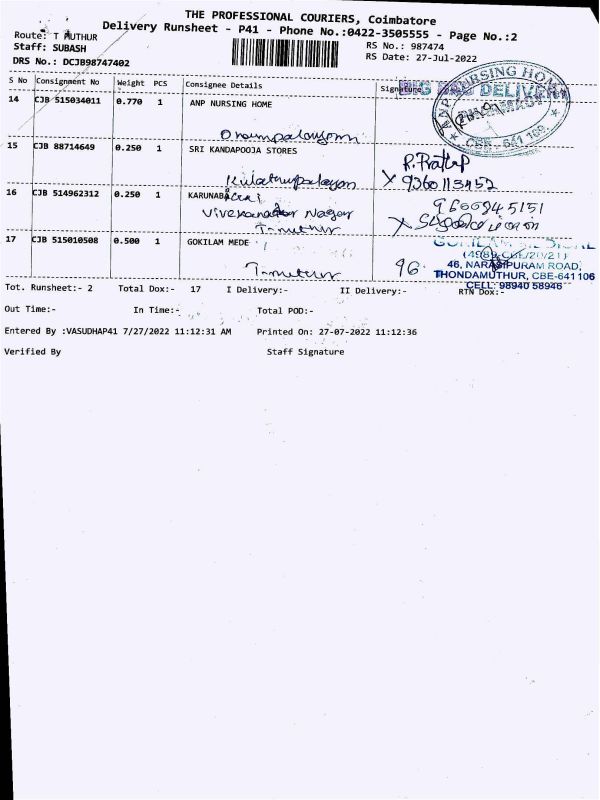 THE PROFESSIONAL COURIERS, Coimbatore
Delivery Runsheet - P41 - Phone No.:0422-3505555 - Page No.:2
Route: T MUTHUR
RS No.: 987474
Staff: SUBASH
RS Date: 27-Jul-2022
DRS No.: DCJB98747402
S No Consignment No Weight PCS Consignee Details Signature
14 CJB 515034011 0.770 1 ANP NURSING HOME
ANP NURSING HOME
CBE - 641 109.
15 CJB 88714649 0.250 1 SRI KANDAPOOJA STORES
R. Prattap
Kulathupalayam X 9360113452
16 CJB 514962312 0.250 1 KARUNABA
9600345151
Nagar
17 CJB 515010508 0.500 1 GOKILAM MEDE
GOKILAM MEDICAL
96.
46, NARASIPURAM ROAD,
THONDAMUTHUR, CBE-641 106
CELL: 98940 58946
Tot. Runsheet:- 2 Total Dox:- 17 I Delivery:- II Delivery:- RTN Dox:-
Out Time:- In Time:- Total POD:-
Entered By :VASUDHAP41 7/27/2022 11:12:31 AM Printed On: 27-07-2022 11:12:36
Verified By Staff Signature